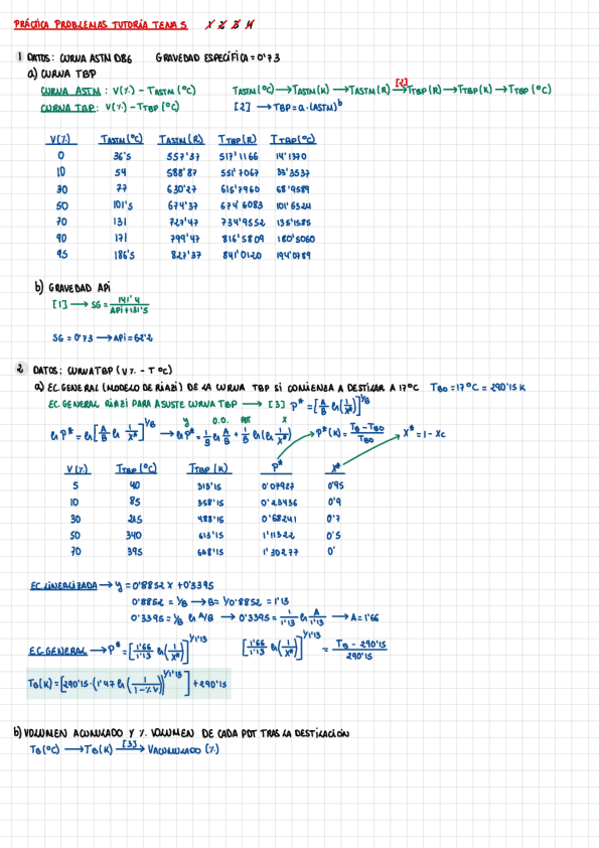 PRÁCTICA PROBLEMAS TUTORÍA TEMA 5 1 2 3 4
1 DATOS: CURVA ASTM D86 GRAVEDAD ESPECÍFICA = 0'73
a) CURVA TBP
CURVA ASTM : V(%) - TASTM (ºC) TASTM (ºC) → TASTM (K) → TASTM (R) [2]→ TTBP (R) → TTBP (K) → TTBP (ºC)
CURVA TBP: V(%) - TTBP (ºC) [2] → TBP = a · (ASTM)^b
V(%) TASTM (ºC) TASTM (R) TTBP (R) TTBP (ºC)
0 36'5 557'37 517'1166 14'1370
10 54 588'87 551'7067 33'3537
30 77 630'27 615'7960 68'9589
50 101'5 674'37 674'6083 101'6324
70 131 727'47 734'9552 135'1585
90 171 799'47 816'5809 180'5060
95 186'5 827'37 841'0120 194'0789
b) GRAVEDAD API
[1] → SG = 141'4 / API + 131'5
SG = 0'73 → API = 62'2
2 DATOS: CURVA TBP (V% - TºC)
a) EC. GENERAL (MODELO DE RIAZI) DE LA CURVA TBP SI COMIENZA A DESTILAR A 17ºC TBO = 17ºC = 290'15 K
EC. GENERAL RIAZI PARA AJUSTE CURVA TBP → [3] P* = [A/B ln(1/X*)]^1/B
y O.O. PDT X
ln P* = ln [A/B ln 1/X*]^1/B → ln P* = 1/B ln A/B + 1/B ln (ln 1/X*) P*(K) = TB - TBO / TBO X* = 1 - Xc
V(%) TTBP (ºC) TTBP (K) P* X*
5 40 313'15 0'07927 0'95
10 85 358'15 0'23436 0'9
30 215 488'15 0'68241 0'7
50 340 613'15 1'11322 0'5
70 395 668'15 1'30277 0'
EC. LINEALIZADA → y = 0'8852 x + 0'3395
0'8852 = 1/B → B = 1/0'8852 = 1'13
0'3395 = 1/B ln A/B → 0'3395 = 1/1'13 ln A/1'13 → A = 1'66
EC. GENERAL → P* = [1'66/1'13 ln(1/X*)]^1/1'13 [1'66/1'13 ln(1/X*)]^1/1'13 = TB - 290'15 / 290'15
TB(K) = [290'15 · (1'47 ln (1/1-%V))^1/1'13] + 290'15
b) VOLUMEN ACUMULADO Y % VOLUMEN DE CADA PDT TRAS LA DESTILACIÓN
TB (ºC) → TB (K) [3]→ VACUMULADO (%)